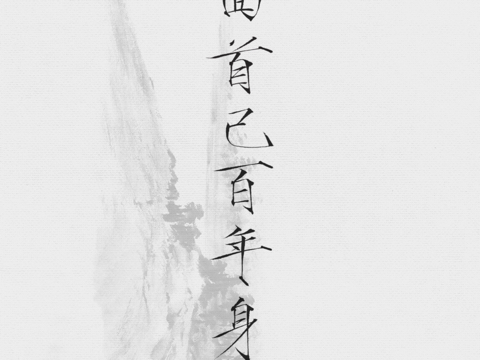 回首已百年身